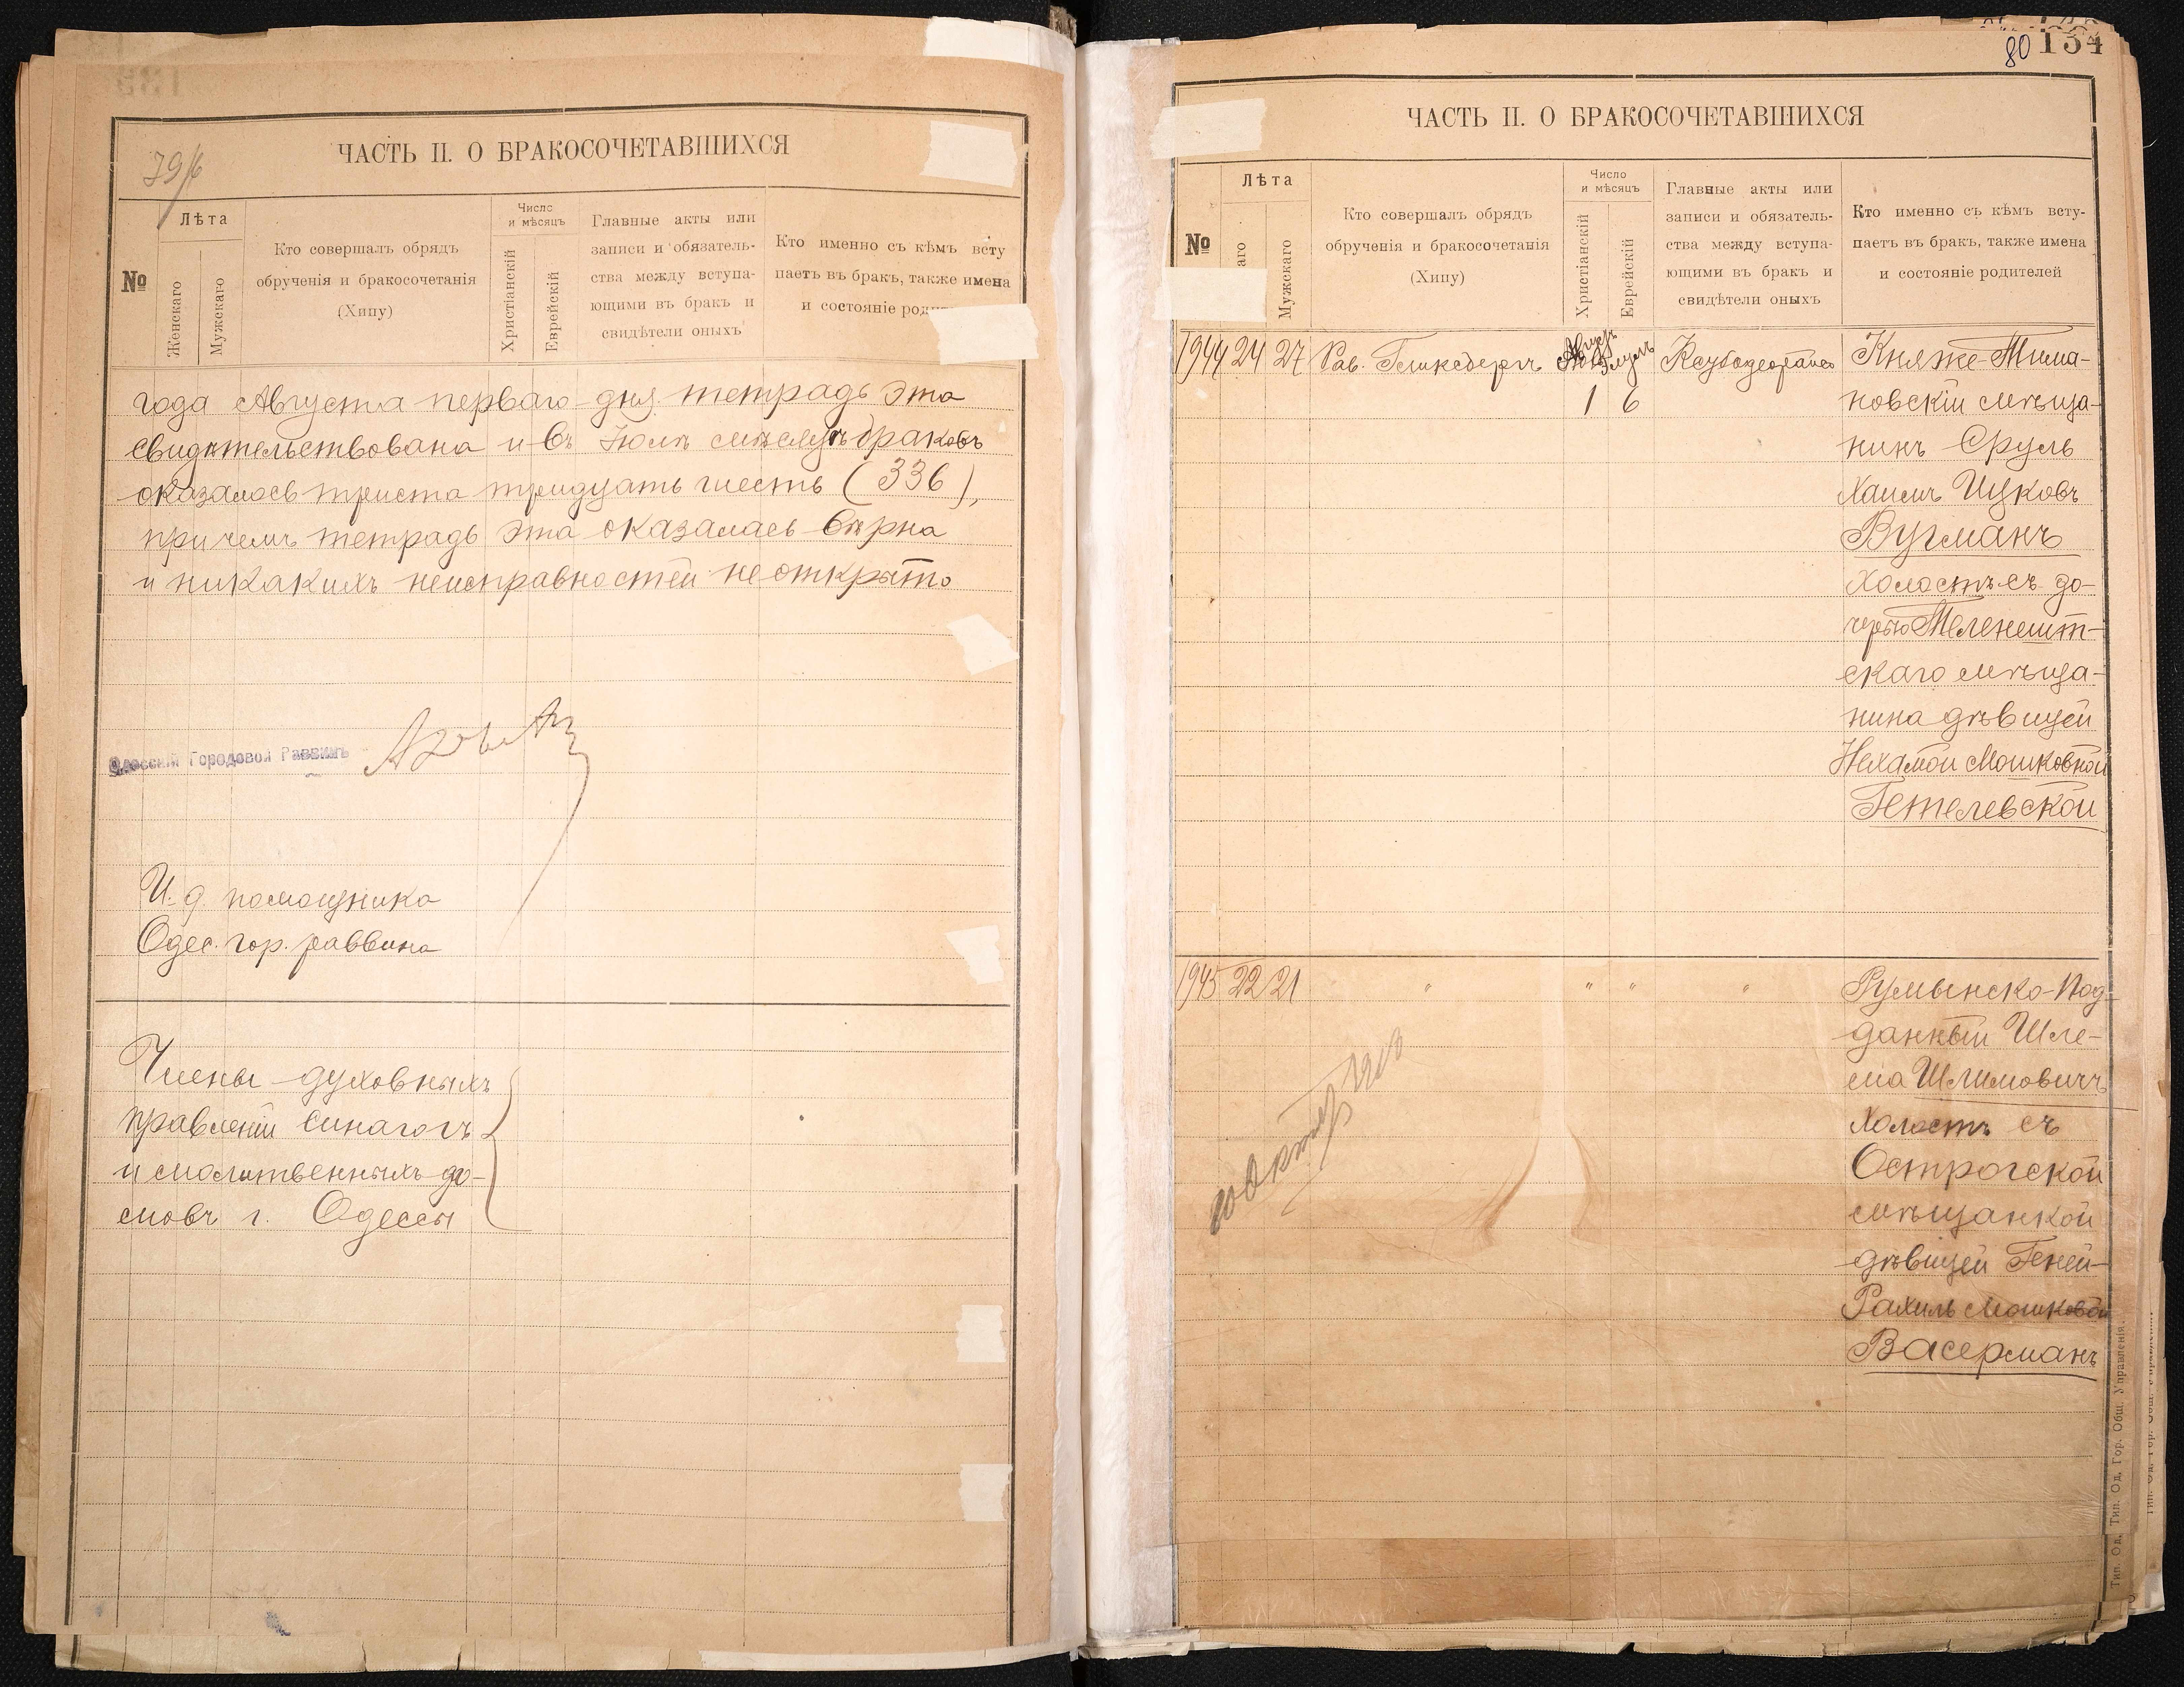 ЧАСТЬ II. О БРАКОСОЧЕТАВШИХСЯ
№
Лѣта
Женскаго
Мужскаго
Кто совершалъ обрядъ
обрученія и бракосочетанія
(Хипу)
Число
и мѣсяцъ
Христіанскій
Еврейскій
Главные акты или
записи и обязатель-
ства между вступа-
ющими въ бракъ и
свидѣтели оныхъ
Кто именно съ кѣмъ всту
паетъ въ бракъ, также имена
и состояніе
года Августа перваго дня тетрадь эта
свидѣтельствована и въ Юлѣ мѣсяцѣ браковъ
оказалось триста тридцать шесть (336),
при чемъ тетрадь эта оказалась вѣрна
и никакихъ неисправностей не открыто
Одесскій Городовой Раввинъ
И. д. помощника
Одес. гор. раввина
Члены духовныхъ
правленій синагогъ
и молитвенныхъ до-
мовъ г. Одессы
80 134
ЧАСТЬ II. О БРАКОСОЧЕТАВШИХСЯ
№
Лѣта
аго
Мужскаго
Кто совершалъ обрядъ
обрученія и бракосочетанія
(Хипу)
Число
и мѣсяцъ
Христіанскій
Еврейскій
Главные акты или
записи и обязатель-
ства между вступа-
ющими въ бракъ и
свидѣтели оныхъ
Кто именно съ кѣмъ всту-
паетъ въ бракъ, также имена
и состояніе родителей
1944 24 27 Рав. Гликсбергъ
1 6
Княже-
новскій мѣща-
нинъ Сруль
Хаимъ Ицковъ
Вугманъ
холостъ съ до-
черью Теленешт-
скаго мѣща-
нина дѣвицей
Нехамой Мошковной
Гетелевской
1945 22 21 " " " "
Румынско-Под-
данный Шле-
ма Шлимовичъ
холостъ съ
Острогской
мѣщанкой
дѣвицей Геней-
Рахиль Мошковой
Васерманъ
Тип. Од. Гор. Общ. Управленія.